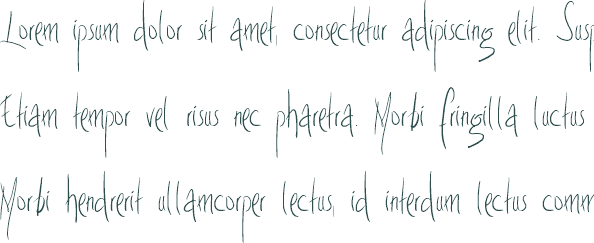 Lorem ipsum dolor sit amet, consectetur adipiscing elit. Susp
Etiam tempor vel risus nec pharetra. Morbi fringilla luctus
Morbi hendrerit ullamcorper lectus, id interdum lectus comm